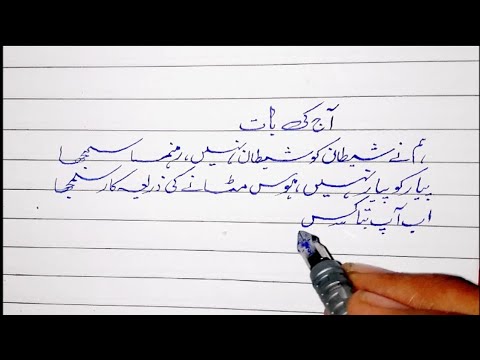 آج کی بات
ہم نے شیطان کو شیطان نہیں، رہنما سمجھا
پیار کو پیار نہیں، ہوس مٹانے کی ذریعہ کار سمجھا
اب آپ بتا کس